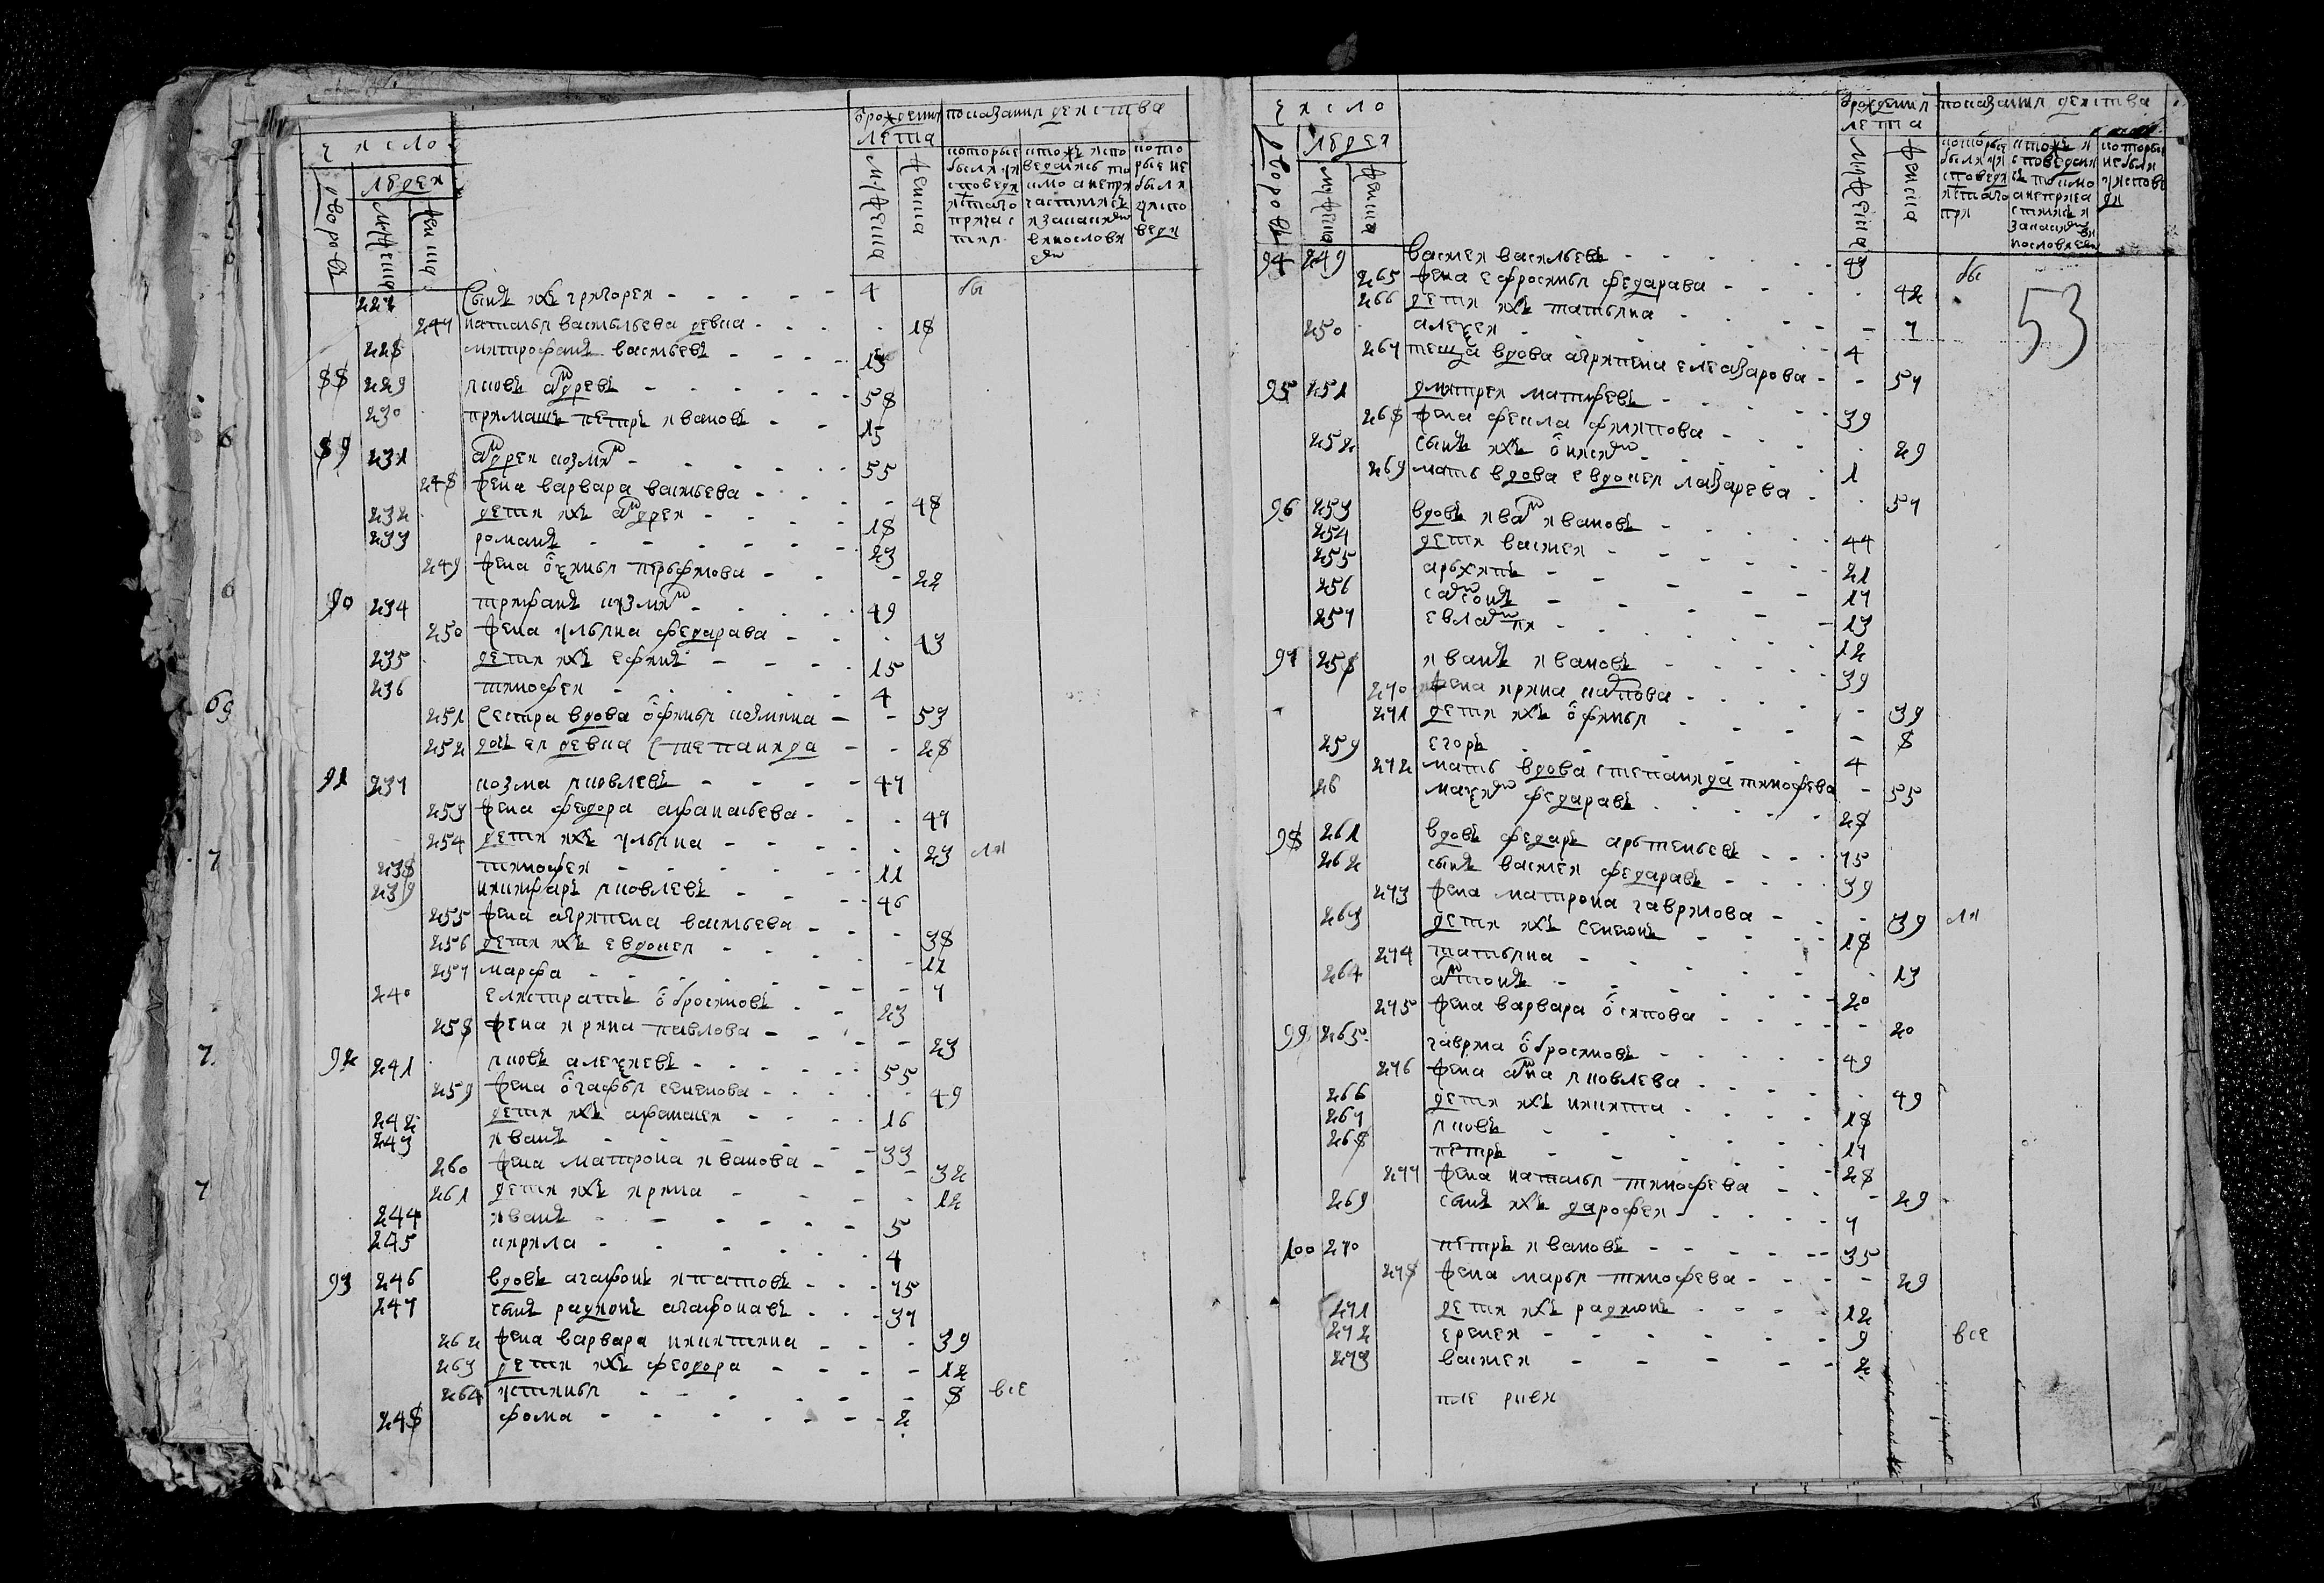 число
дворовъ
людей
мужеска
женска
от рождения
лета
мужеска
женска
показания действа
которые были у исповеди и святого причастия
кто же исповедались токмо а не причастились и за каким винословием
которые не были у исповеди
227 сынъ ихъ григорей - 4 бы
247 наталья васильева девка - 18
228 митрофанъ васильевъ - 15
88 229 яковъ андревъ - 58
230 примашъ петръ ивановъ - 15
89 231 андрей козминъ - 55
248 жена варвара васильева - 48
232 дети ихъ андрей - 18
233 романъ - 23
249 жена оксинья перфилова - 22
90 234 трифанъ кузминъ - 49
250 жена ульяна федарава - 43
235 дети ихъ ефимъ - 15
236 тимофей - 4
251 сестра вдова офимья козмина - 53
252 дочь ея девка степанида - 28
91 237 козма яковлевъ - 47
253 жена федора афанасьева - 47
254 дети ихъ ульяна - 23 ли
238 тимофей - 11
239 никифаръ яковлевъ - 46
255 жена агрипена васильева - 38
256 дети ихъ евдокея - 11
257 марфа - 7
240 елистратъ обросимовъ - 23
258 жена ирина павлова - 23
92 241 яковъ алексеевъ - 55
259 жена огафья семенова - 49
242 дети ихъ афанасей - 16
243 иванъ - 33
260 жена матрона иванова - 32
261 дети ихъ ирина - 12
244 иванъ - 5
245 кирила - 4
93 246 вдовъ агафонъ ипатовъ - 75
247 сынъ радионъ агафонавъ - 37
262 жена варвара никитина - 39
263 дети ихъ феодора - 12
264 устинья - 8 все
248 фома - 2
число
дворовъ
людей
мужеска
женска
от рождения
лета
мужеска
женска
показания действа
которые были у исповеди и святого при
кто же исповедались токмо а не причастились и за каким винословием
которые не были у исповеди
53
94 249 василей васильевъ - 43 бы
265 жена ефросинья федарава - 42
266 дети ихъ татьяна - 7
250 алексей - 4
267 теща вдова агрипена елеазарова - 57
95 251 дмитрей матфеевъ - 39
268 жена фекла филипова - 29
252 сынъ ихъ онисим - 1
269 мать вдова евдокея лазарева - 57
96 253 вдовъ иван ивановъ - 44
254 дети василей - 21
255 архипъ - 17
256 самсонъ - 13
257 евлампи - 12
97 258 иванъ ивановъ - 39
270 жена ирина карпова - 39
271 дети ихъ офимья - 8
259 егоръ - 4
272 мать вдова степанида тимофева - 55
26 максим федаравъ - 28
98 261 вдовъ федаръ артеньевъ - 75
262 сынъ василей федаравъ - 39
273 жена матрона гаврилова - 39 ли
263 дети ихъ семенъ - 18
274 татьяна - 13
264 антонъ - 20
275 жена варвара осипова - 20
99 265 гаврила обросимовъ - 49
276 жена анна яковлева - 49
266 дети ихъ никита - 18
267 яковъ - 17
268 петръ - 28
277 жена наталья тимофева - 29
269 сынъ ихъ дарофей - 7
100 270 петръ ивановъ - 35
278 жена марья тимофева - 29
271 дети ихъ радионъ - 12
272 еремей - 9 все
273 василей - 2